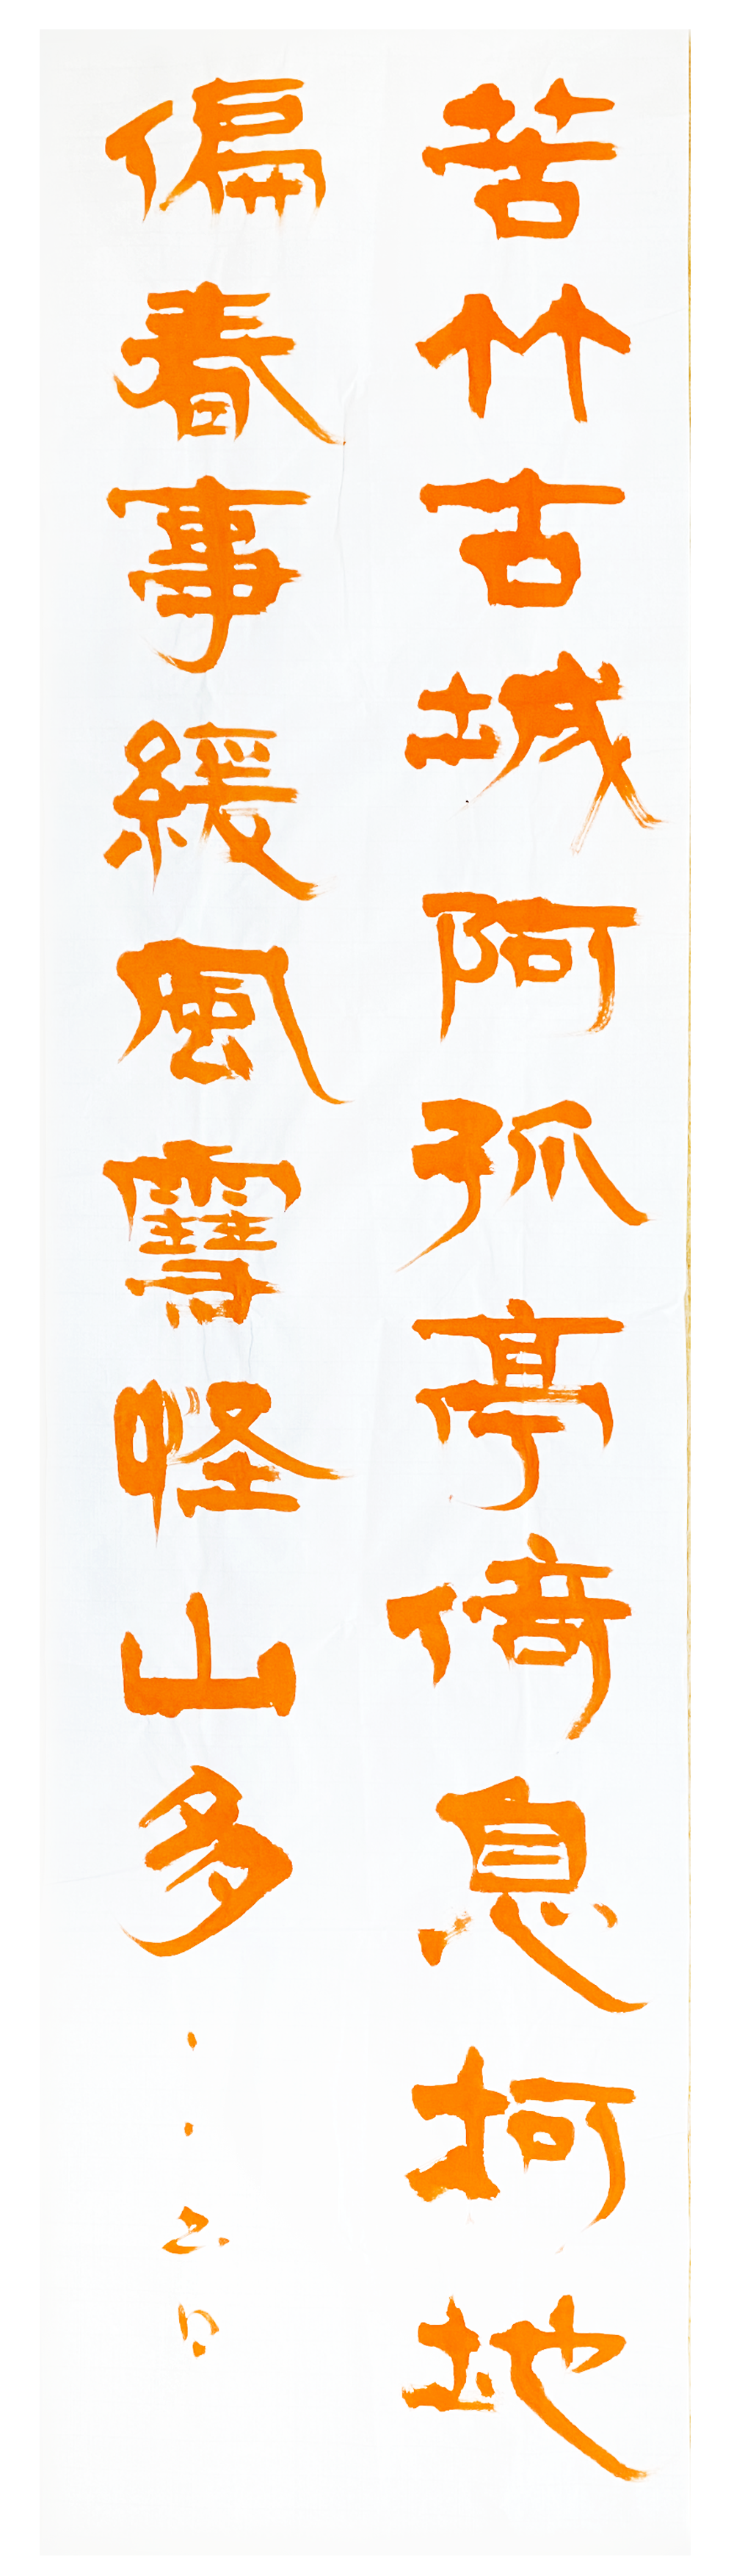 苦竹古城阿孤亭倚息柯地
偏春事緩風雪怪山多